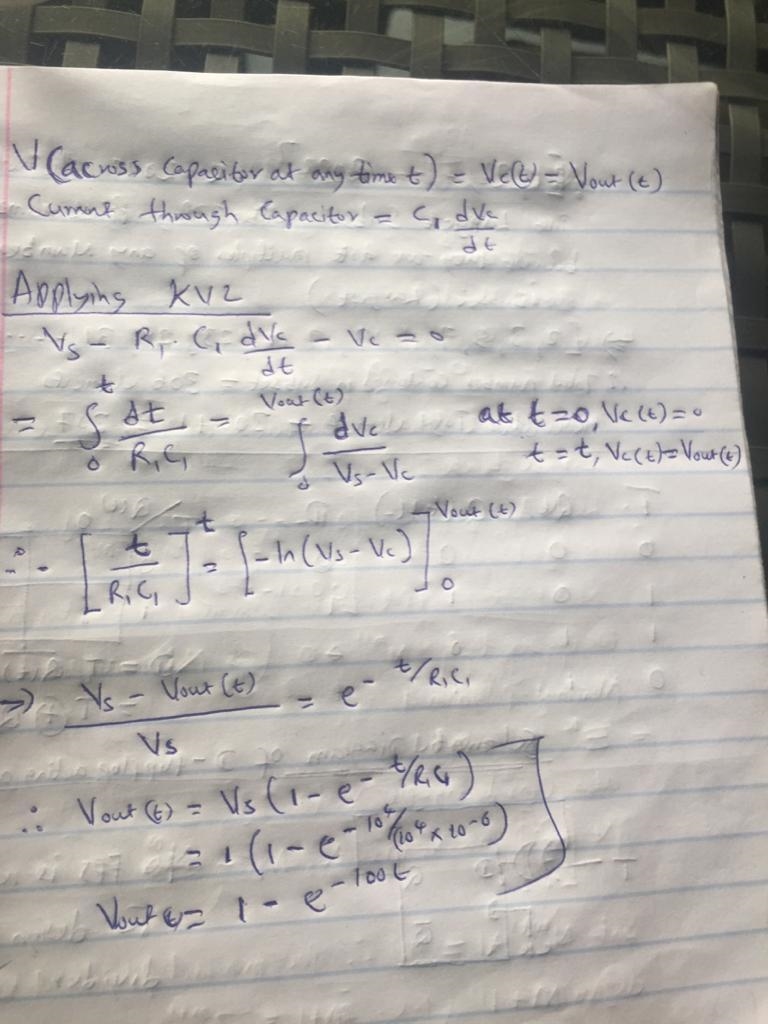 V(across Capacitor at any time t) = Vc(t) = Vout (t)
Current through Capacitor = C₁ dVc/dt
Applying KVL
Vs - R₁. C₁ dVc/dt - Vc = 0
= ∫₀ᵗ dt/R₁C₁ = ∫₀^Vout(t) dVc/Vs-Vc at t=0, Vc(t)=0
t=t, Vc(t)=Vout(t)
∴ [t/R₁C₁]ᵗ = [-ln(Vs-Vc)]₀^Vout(t)
⇒ Vs - Vout(t)/Vs = e^-t/R₁C₁
∴ Vout(t) = Vs(1-e^-t/R₁C₁)
= 1(1-e^-10⁴/(10⁴×10⁻⁶))
Vout t= 1 - e^-100t